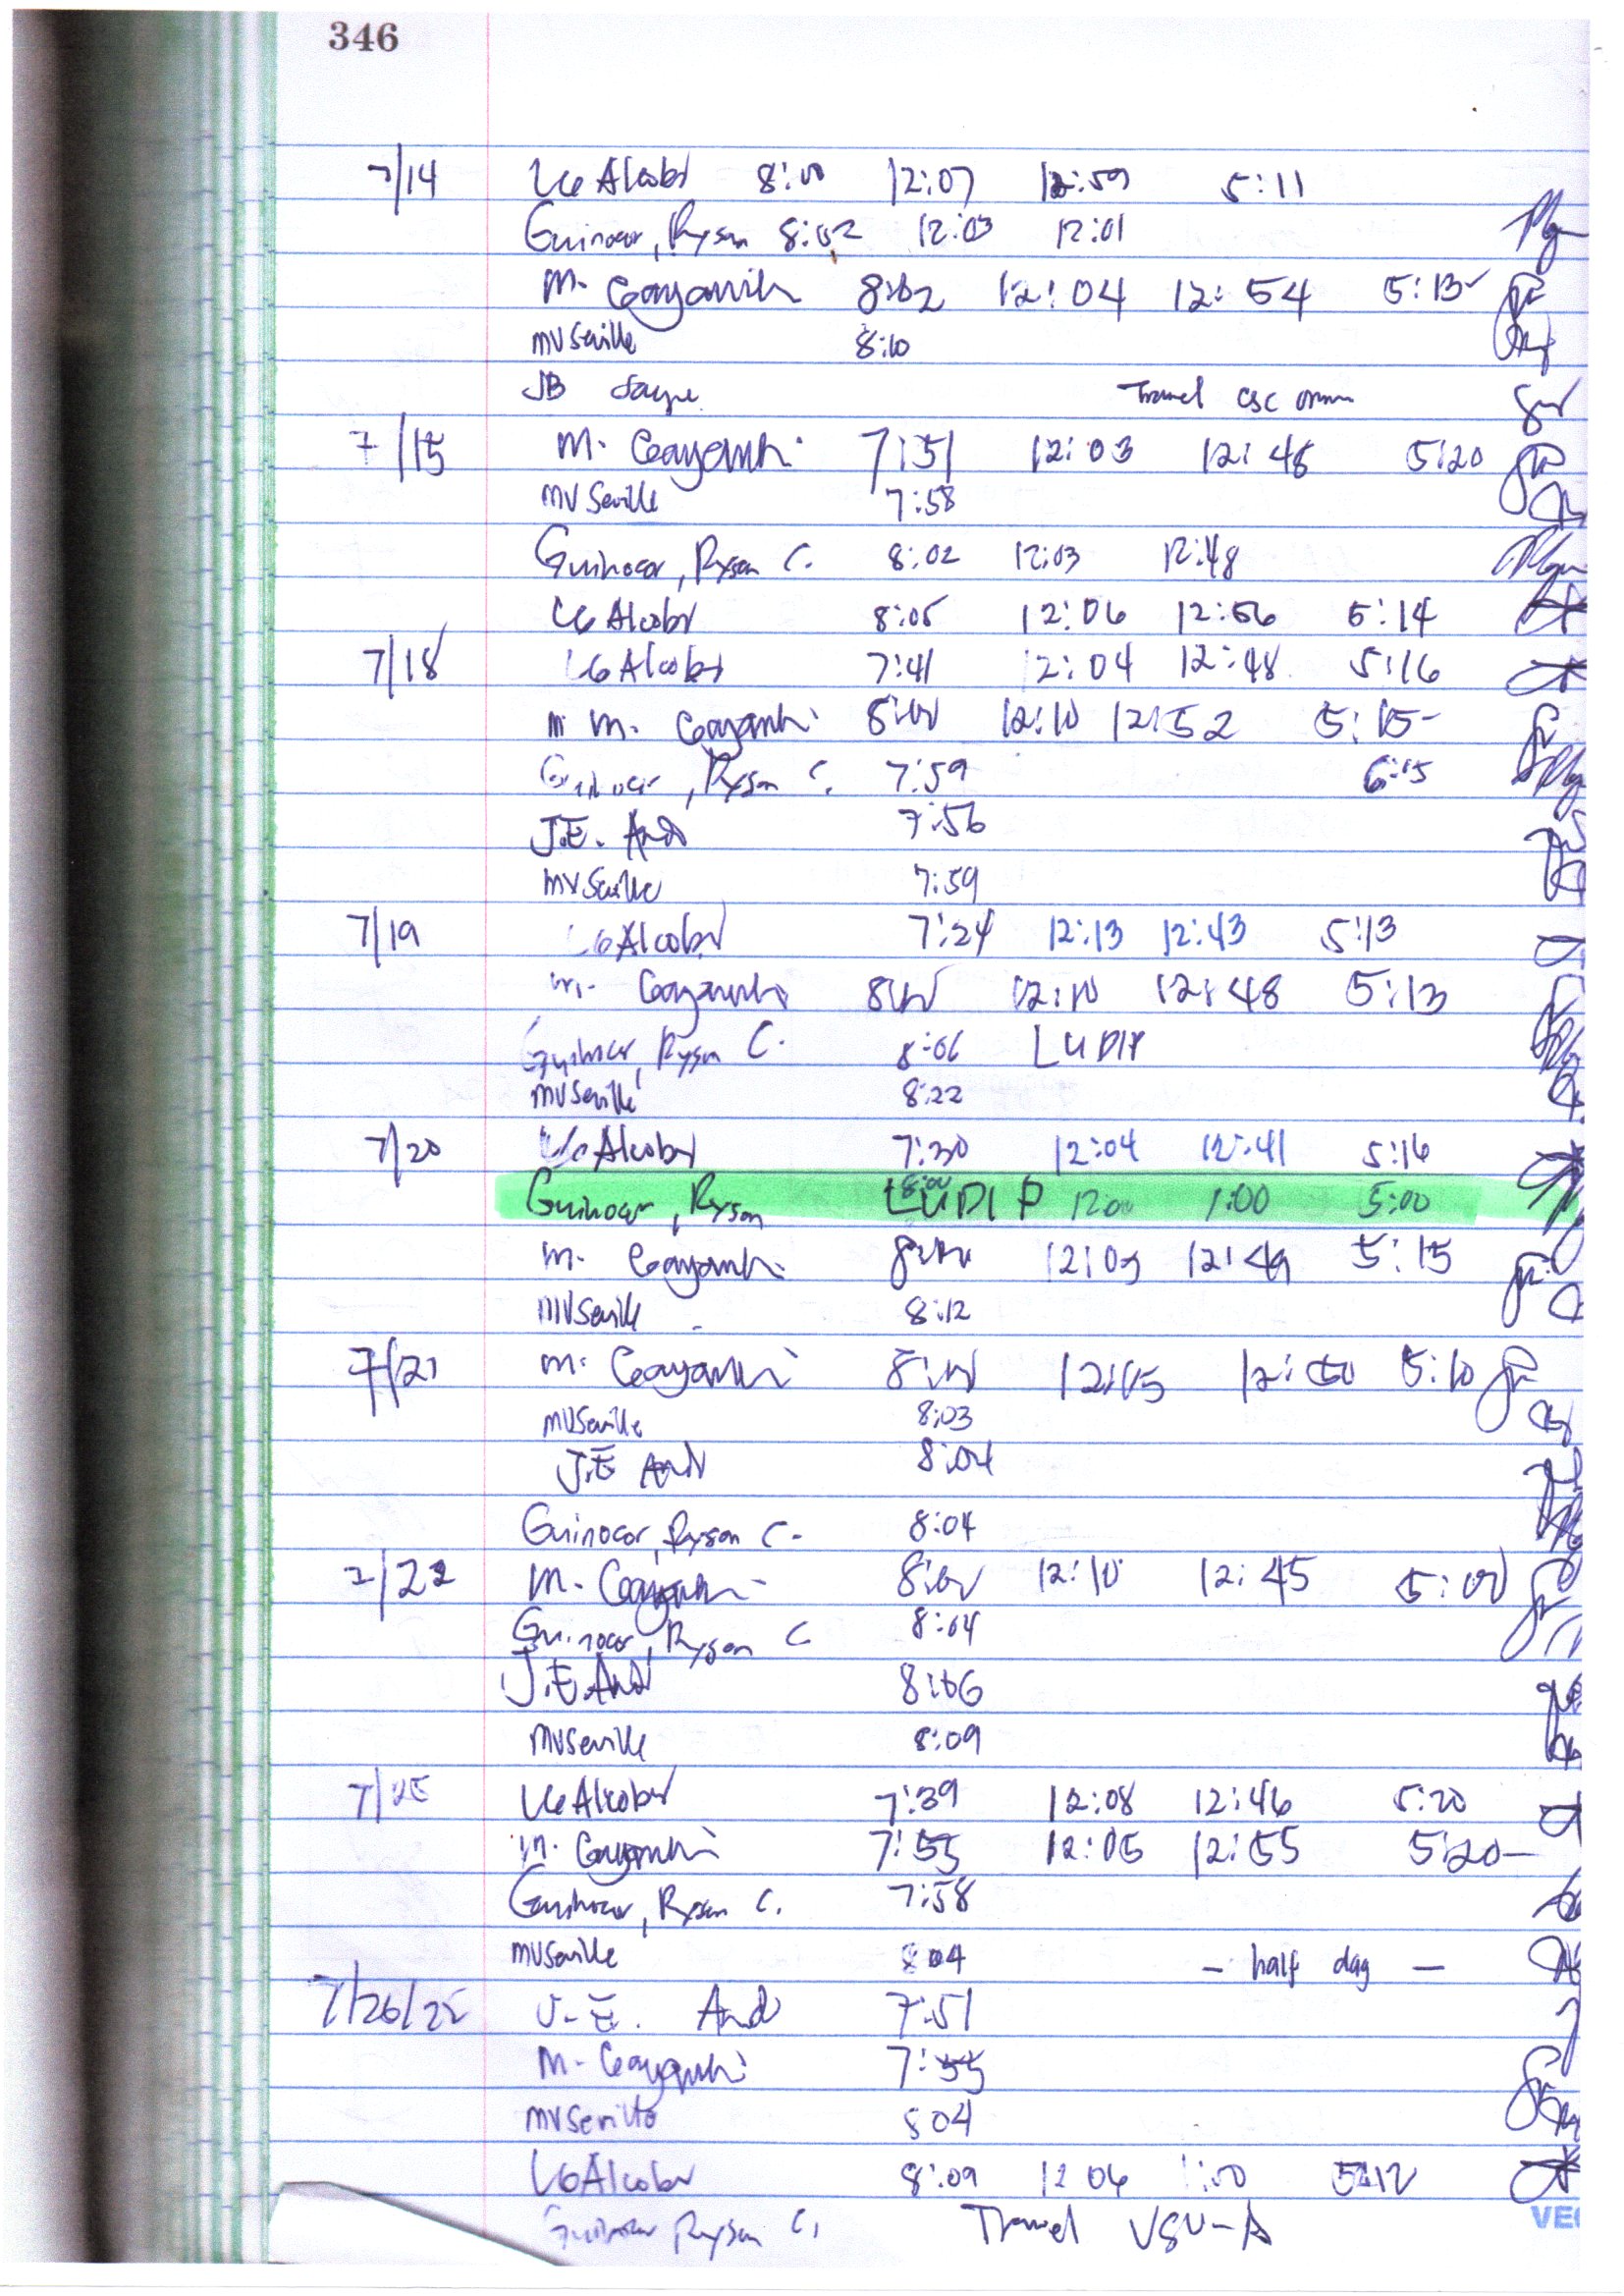 346
7/14 LG Alcober 8:00 12:07 12:59 5:11
Guinocor, Ryson 8:02 12:03 12:01
M. 8:02 12:04 12:54 5:15
MV Seville 8:10
JB Travel CSC
7/15 M. 7:51 12:03 12:48 5:20
MV Seville 7:58
Guinocor, Ryson C. 8:02 12:03 12:48
LG Alcober 8:05 12:06 12:56 5:14
7/18 LG Alcober 7:41 12:04 12:48 5:16
M. 8:00 12:10 12:52 5:15
Guinocor, Ryson C. 7:59
J.E. And 7:56
MV Seville 7:59
7/19 LG Alcober 7:24 12:13 12:43 5:13
M. 8:00 12:10 12:48 5:13
Guinocor, Ryson C. 8:06 LUDIP
MV Seville 8:22
7/20 LG Alcober 7:30 12:04 12:41 5:16
Guinocor, Ryson 8:00 LUDIP 12:00 1:00 5:00
M. 8:00 12:09 12:49 5:15
MV Seville 8:12
7/21 M. 8:00 12:05 12:50 5:10
MV Seville 8:03
J.E And 8:04
Guinocor, Ryson C. 8:04
7/22 M. 8:00 12:10 12:45 5:00
Guinocor, Ryson C 8:04
J.E. And 8:06
MV Seville 8:09
7/25 LG Alcober 7:39 12:08 12:46 5:20
M. 7:55 12:05 12:55 5:20
Guinocor, Ryson C. 7:58
MV Seville 8:04 - half day -
7/26/22 J.E. And 7:51
M. 7:55
MV Seville 8 04
LG Alcober 8:09 12 06 1:00 5:12
Guinocor Ryson C. Travel VSU-A